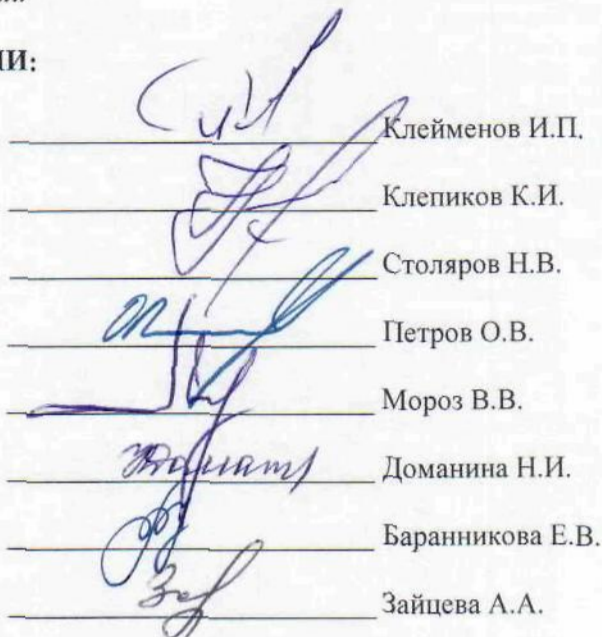 ИИ:
Клейменов И.П.
Клепиков К.И.
Столяров Н.В.
Петров О.В.
Мороз В.В.
Доманина Н.И.
Баранникова Е.В.
Зайцева А.А.